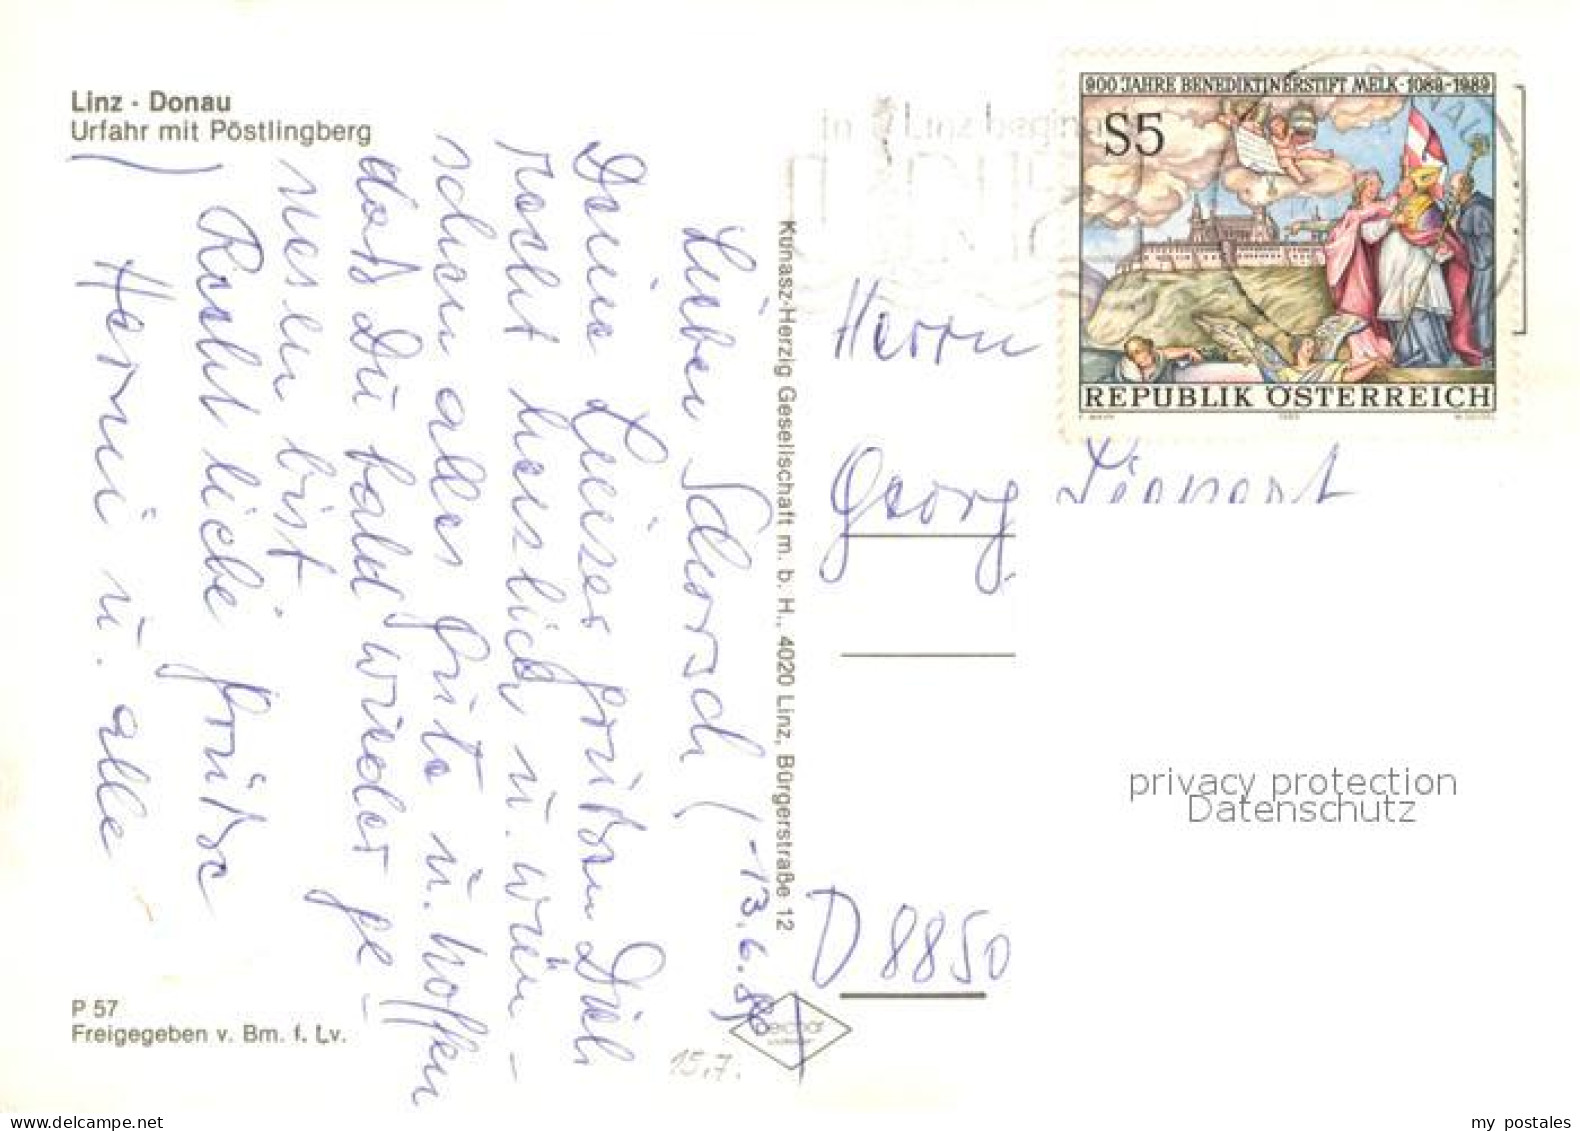 Linz - Donau
Urfahr mit Pöstlingberg
Lieber Schorsch!
-13.6.
Deine Linzer grüßen Dich
recht herzlich u. wün-
schen alles Gute u. hoffen
daß Du bald wieder ge-
nesen bist.
Recht liebe Grüße
Hermi u. alle
P 57
Freigegeben v. Bm. f. Lv.
15.7.
Kunasz-Herzig Gesellschaft m. b. H., 4020 Linz, Bürgerstraße 12
900 JAHRE BENEDIKTINERSTIFT MELK · 1089-1989
S5
REPUBLIK ÖSTERREICH
in Linz
Herrn
Georg
D 8850
privacy protection
Datenschutz
my postales